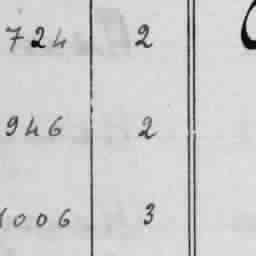 724 2
946 2
1006 3